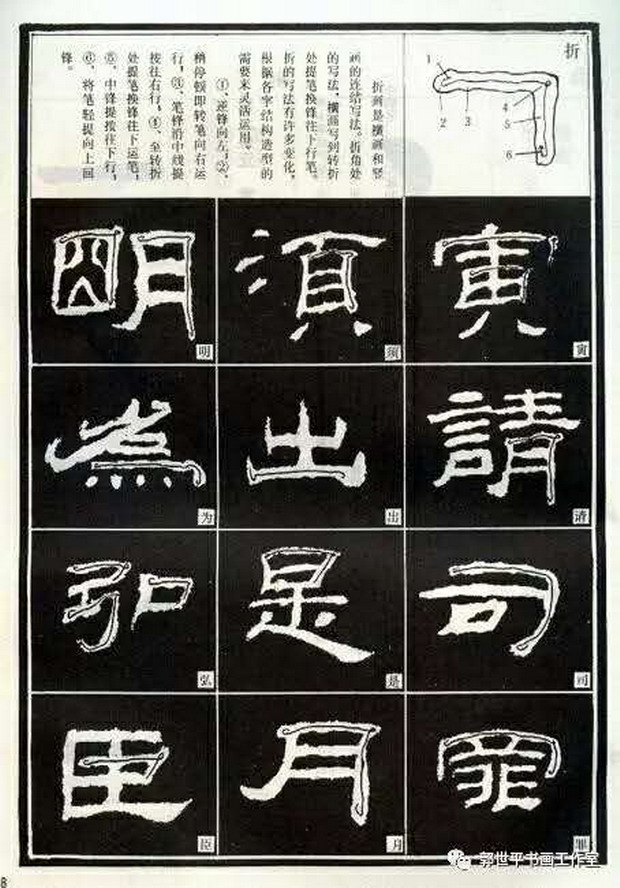 折
1
2
3
4
5
6
折画是横画和竖
画的连结写法。折角处
的写法，横画写到转折
处提笔换锋往下行笔。
折的写法有许多变化，
根据各字结构造型的
需要来灵活运用。
①、逆锋向左，②、
稍停顿即转笔向右运
行，③、笔锋沿中线提
按往右行，④、至转折
处提笔换锋往下运笔，
⑤、中锋提按往下行，
⑥、将笔轻提向上回
锋。
寅
寅
須
须
明
明
請
请
出
出
為
为
司
司
是
是
弘
弘
罪
罪
月
月
臣
臣
8
郭世平书画工作室